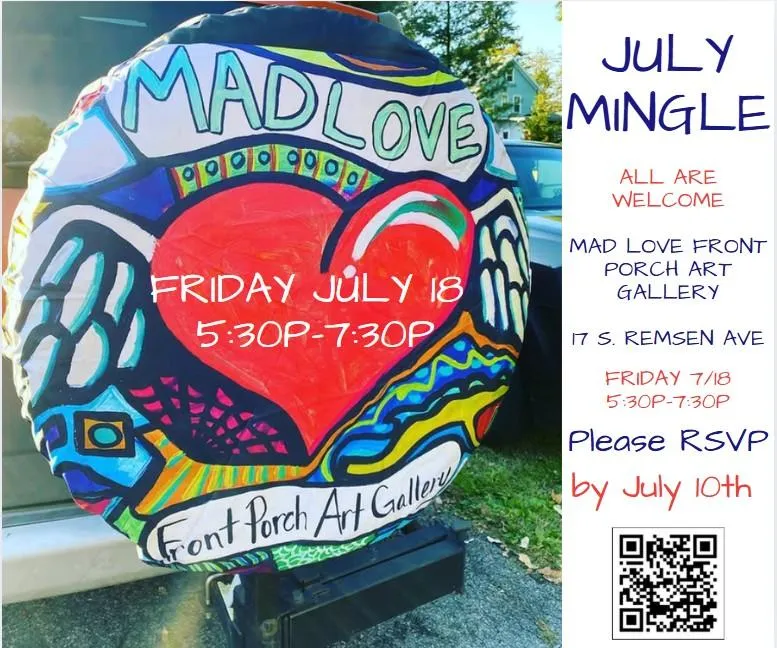 MAD LOVE
FRIDAY JULY 18
5:30P-7:30P
Front Porch Art Gallery
JULY
MINGLE
ALL ARE
WELCOME
MAD LOVE FRONT
PORCH ART
GALLERY
17 S. REMSEN AVE
FRIDAY 7/18
5:30P-7:30P
Please RSVP
by July 10th